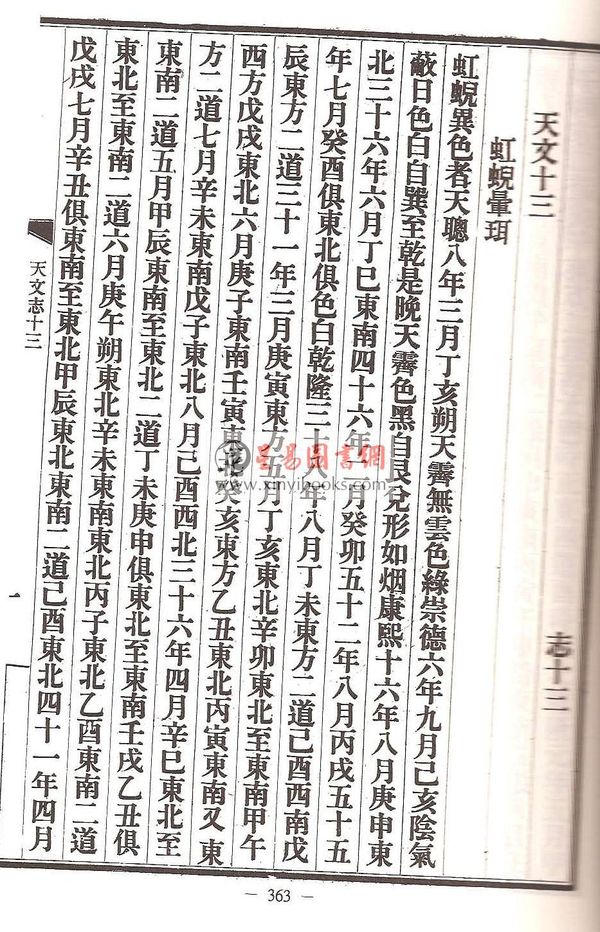 天文十三 志十三
虹蜺暈珥
虹蜺異色者天聰八年三月丁亥朔天霽無雲色綠崇德六年九月己亥陰氣
蔽日色白自巽至乾是晚天霽色黑自艮兌形如烟康熙十六年八月庚申東
北三十六年六月丁巳東南四十六年 月癸卯五十二年八月丙戌五十五
年七月癸酉俱東北俱色白乾隆三十 年八月丁未東方二道己酉西南戊
辰東方二道三十一年三月庚寅東方五月丁亥東北辛卯東北至東南甲午
西方戊戌東北六月庚子東南壬寅東北癸亥東方乙丑東北丙寅東南又東
方二道七月辛未東南戊子東北八月己酉西北三十六年四月辛巳東北至
東南二道五月甲辰東南至東北二道丁未庚申俱東北至東南壬戌乙丑俱
東北至東南二道六月庚午朔東北辛未東南東北丙子東北乙酉東南二道
戊戌七月辛丑俱東南至東北甲辰東北東南二道己酉東北四十一年四月
天文志十三
星易圖書網
www.xinyibooks.com
— 363 —